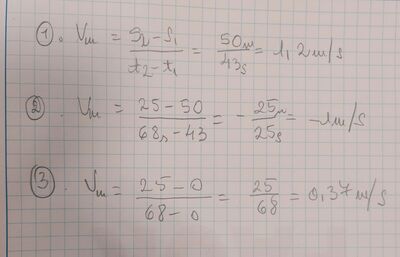 ①. Vm = S2 - S1 / t2 - t1 = 50m / 43s = 1,2m/s
②. Vm = 25 - 50 / 68s - 43 = - 25m / 25s = -1m/s
③. Vm = 25 - 0 / 68 - 0 = 25 / 68 = 0,37m/s